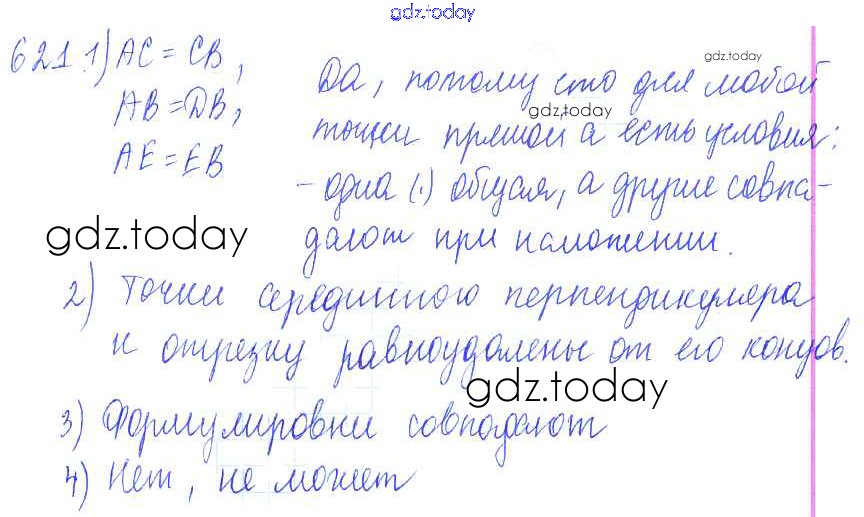 gdz.today
621.1) AC = CB,
AB = DB,
AE = EB
Да, потому что для любой
gdz.today
gdz.today
точки прямой a есть условия:
- одна (.) общая, а другие совпа-
дают при наложении.
gdz.today
2) Точки серединного перпендикуляра
к отрезку равноудалены от его концов.
gdz.today
3) Формулировки совпадают
4) Нет, не может